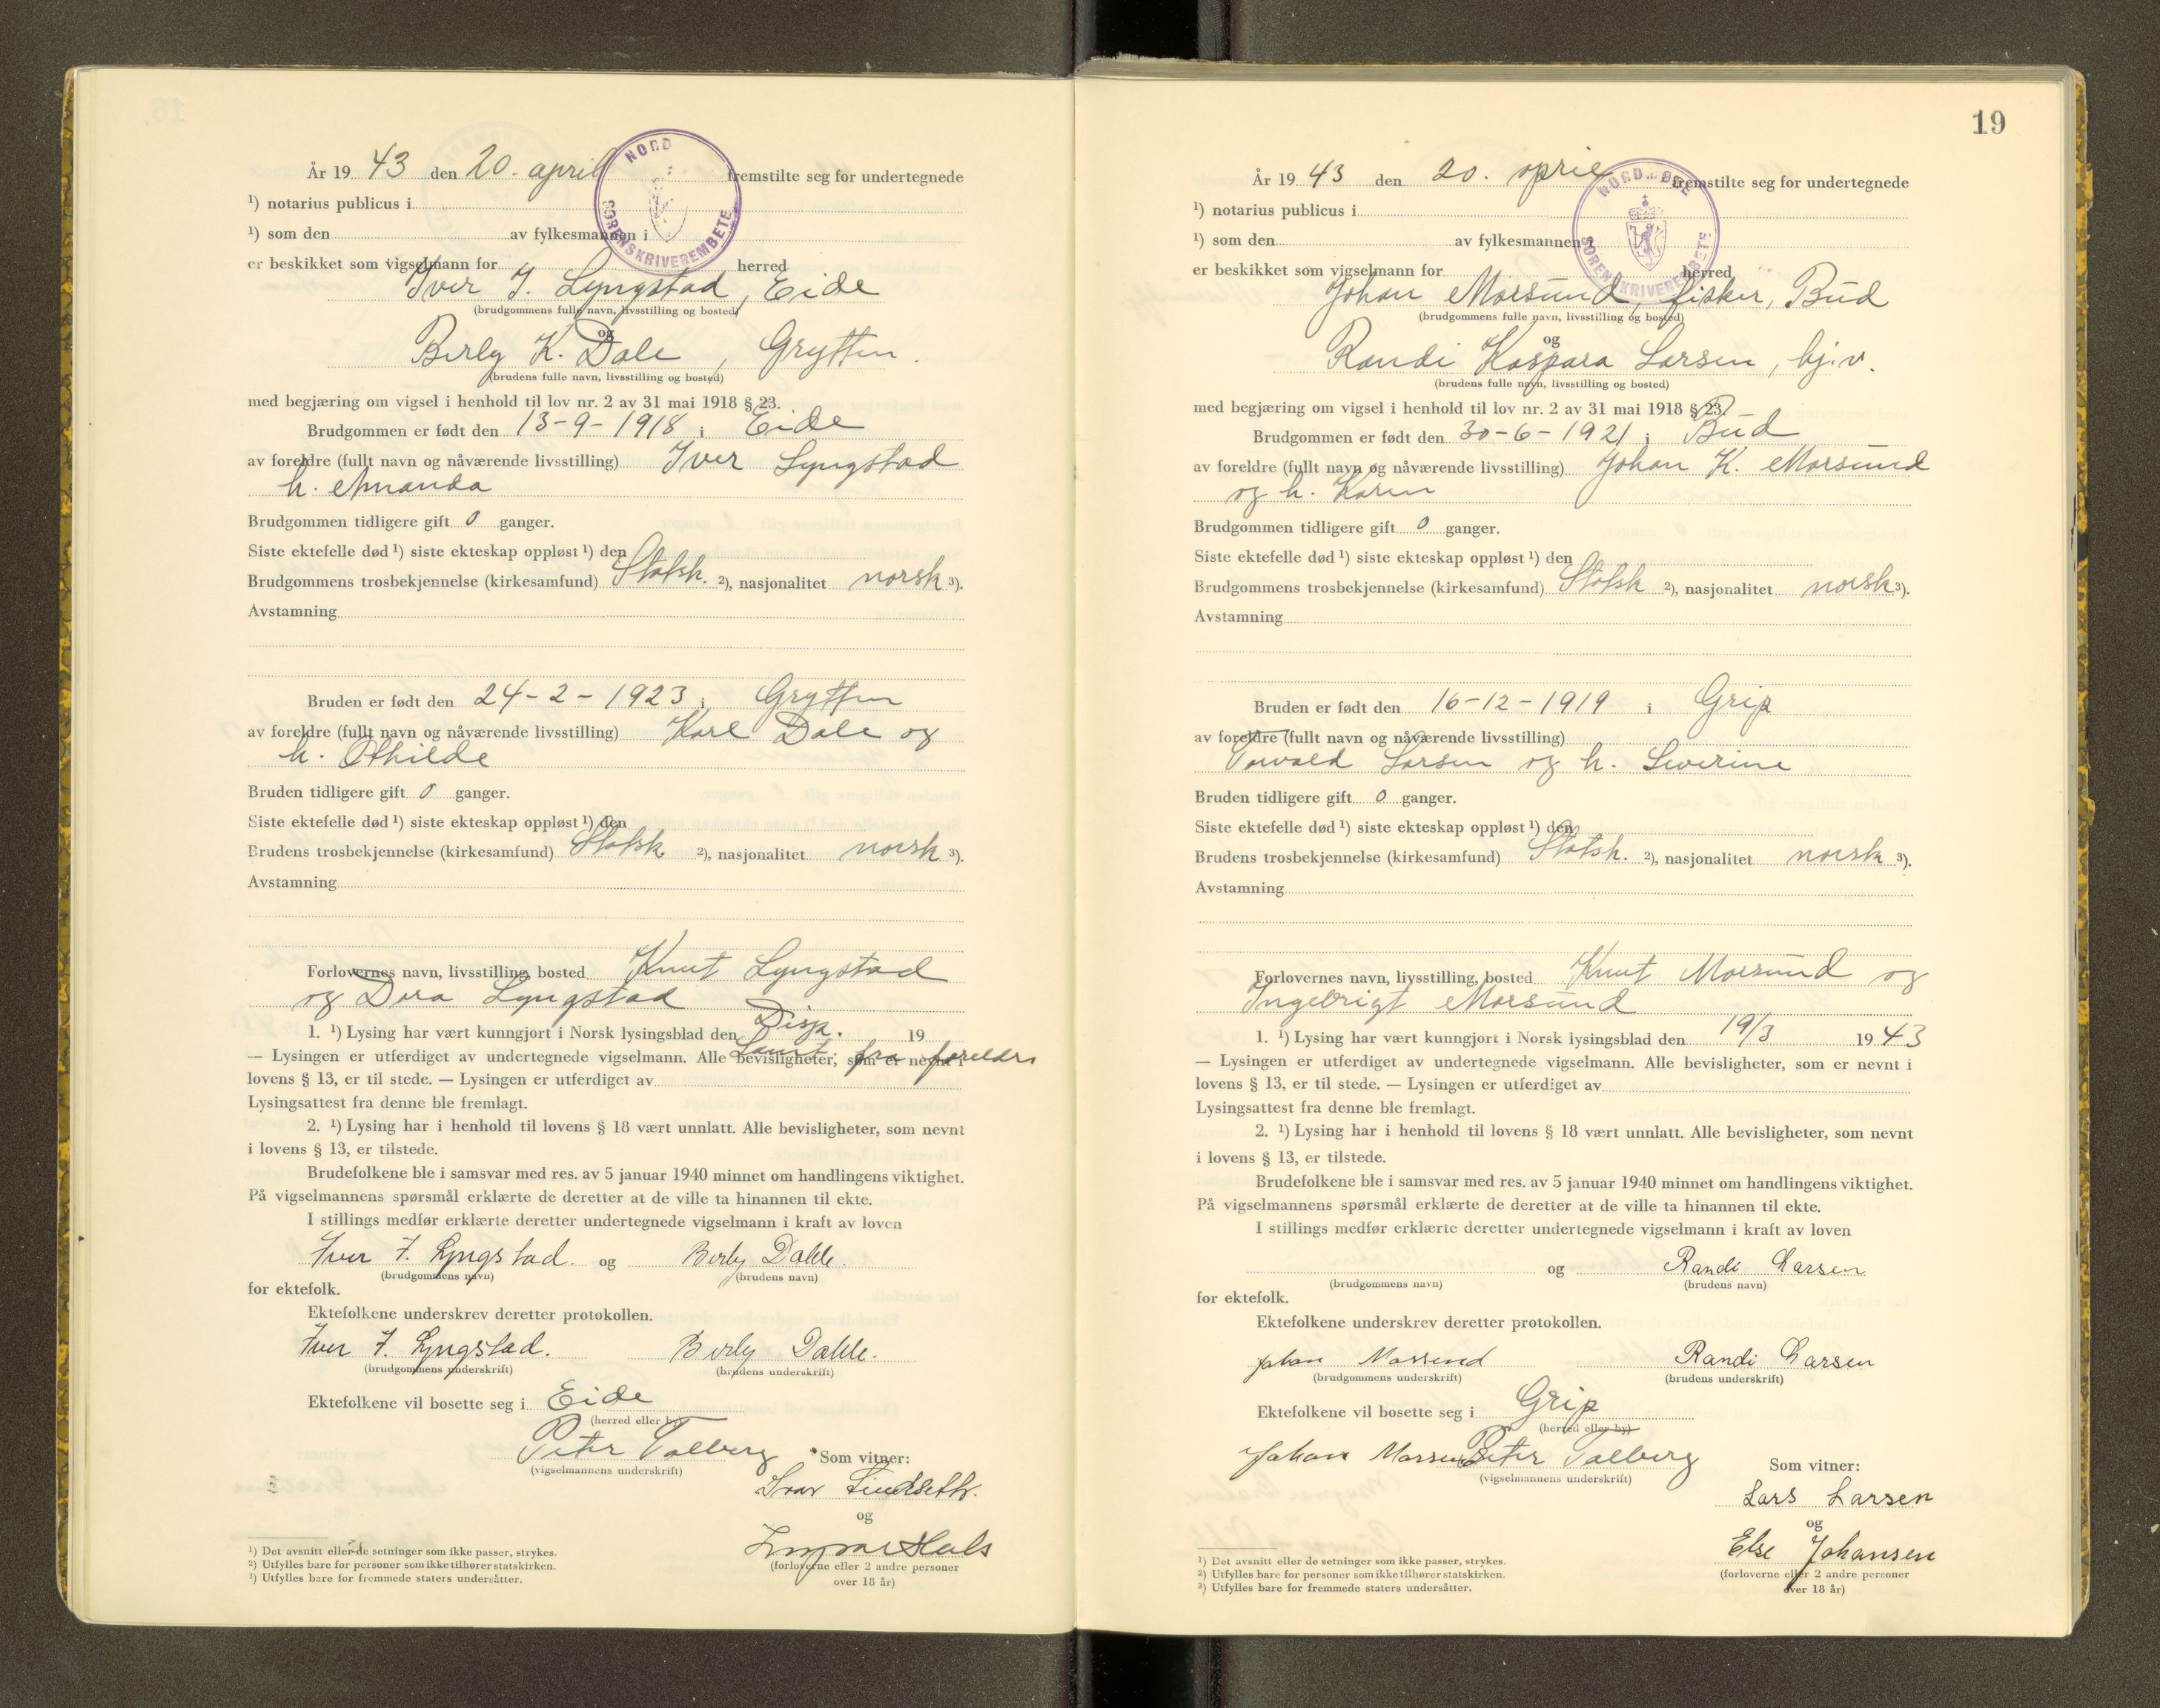 År 19 43 den 20. april fremstilte seg for undertegnede
¹) notarius publicus i
¹) som den av fylkesmannen i
er beskikket som vigselmann for herred
NORD SORENSKRIVEREMBETE
Iver J. Lyngstad, Eide
(brudgommens fulle navn, livsstilling og bosted)
og
Berly K. Dale, Grytten.
(brudens fulle navn, livsstilling og bosted)
med begjæring om vigsel i henhold til lov nr. 2 av 31 mai 1918 § 23.
Brudgommen er født den 13-9-1918 i Eide
av foreldre (fullt navn og nåværende livsstilling) Iver Lyngstad
h. Amanda
Brudgommen tidligere gift 0 ganger.
Siste ektefelle død ¹) siste ekteskap oppløst ¹) den
Brudgommens trosbekjennelse (kirkesamfund) Statsk. ²), nasjonalitet norsk ³).
Avstamning
Bruden er født den 24-2-1923 i Grytten
av foreldre (fullt navn og nåværende livsstilling) Karl Dale og
h. Othilde
Bruden tidligere gift 0 ganger.
Siste ektefelle død ¹) siste ekteskap oppløst ¹) den
Brudens trosbekjennelse (kirkesamfund) Statsk ²), nasjonalitet norsk ³).
Avstamning
Forlovernes navn, livsstilling, bosted Knut Lyngstad
og Dora Lyngstad
1. ¹) Lysing har vært kunngjort i Norsk lysingsblad den Disp. 19
— Lysingen er utferdiget av undertegnede vigselmann. Alle bevisligheter, som er nevnt i fra foreldre
lovens § 13, er til stede. — Lysingen er utferdiget av
Lysingsattest fra denne ble fremlagt.
2. ¹) Lysing har i henhold til lovens § 18 vært unnlatt. Alle bevisligheter, som nevnt
i lovens § 13, er tilstede.
Brudefolkene ble i samsvar med res. av 5 januar 1940 minnet om handlingens viktighet.
På vigselmannens spørsmål erklærte de deretter at de ville ta hinannen til ekte.
I stillings medfør erklærte deretter undertegnede vigselmann i kraft av loven
Iver J. Lyngstad. og Berly Dahle.
(brudgommens navn) (brudens navn)
for ektefolk.
Ektefolkene underskrev deretter protokollen.
Iver J. Lyngstad. Berly Dahle.
(brudgommens underskrift) (brudens underskrift)
Ektefolkene vil bosette seg i Eide
(herred eller by)
Peter Talberg Som vitner:
(vigselmannens underskrift)
Ivar Lindseth.
og
Hals
(forloverne eller 2 andre personer
over 18 år)
¹) Det avsnitt eller de setninger som ikke passer, strykes.
²) Utfylles bare for personer som ikke tilhører statskirken.
³) Utfylles bare for fremmede staters undersåtter.
19
År 19 43 den 20. april fremstilte seg for undertegnede
¹) notarius publicus i
¹) som den av fylkesmannen i
er beskikket som vigselmann for herred
NORDMØRE SORENSKRIVEREMBETE
Johan Morsund, fisker, Bud
(brudgommens fulle navn, livsstilling og bosted)
og
Randi Kaspara Larsen, hj.v.
(brudens fulle navn, livsstilling og bosted)
med begjæring om vigsel i henhold til lov nr. 2 av 31 mai 1918 § 23.
Brudgommen er født den 30-6-1921 i Bud
av foreldre (fullt navn og nåværende livsstilling) Johan K. Morsund
og h. Karen
Brudgommen tidligere gift 0 ganger.
Siste ektefelle død ¹) siste ekteskap oppløst ¹) den
Brudgommens trosbekjennelse (kirkesamfund) Statsk ²), nasjonalitet norsk ³).
Avstamning
Bruden er født den 16-12-1919 i Grip
av foreldre (fullt navn og nåværende livsstilling)
Torvald Larsen og h. Severine
Bruden tidligere gift 0 ganger.
Siste ektefelle død ¹) siste ekteskap oppløst ¹) den
Brudens trosbekjennelse (kirkesamfund) Statsk. ²), nasjonalitet norsk ³).
Avstamning
Forlovernes navn, livsstilling, bosted Knut Morsund og
Ingebrigt Morsund
1. ¹) Lysing har vært kunngjort i Norsk lysingsblad den 19/3 19 43
— Lysingen er utferdiget av undertegnede vigselmann. Alle bevisligheter, som er nevnt i
lovens § 13, er til stede. — Lysingen er utferdiget av
Lysingsattest fra denne ble fremlagt.
2. ¹) Lysing har i henhold til lovens § 18 vært unnlatt. Alle bevisligheter, som nevnt
i lovens § 13, er tilstede.
Brudefolkene ble i samsvar med res. av 5 januar 1940 minnet om handlingens viktighet.
På vigselmannens spørsmål erklærte de deretter at de ville ta hinannen til ekte.
I stillings medfør erklærte deretter undertegnede vigselmann i kraft av loven
og Randi Larsen
(brudgommens navn) (brudens navn)
for ektefolk.
Ektefolkene underskrev deretter protokollen.
Johan Morsund Randi Larsen
(brudgommens underskrift) (brudens underskrift)
Ektefolkene vil bosette seg i Grip
(herred eller by)
Johan Morsund Peter Talberg Som vitner:
(vigselmannens underskrift)
Lars Larsen
og
Else Johansen
(forloverne eller 2 andre personer
over 18 år)
¹) Det avsnitt eller de setninger som ikke passer, strykes.
²) Utfylles bare for personer som ikke tilhører statskirken.
³) Utfylles bare for fremmede staters undersåtter.